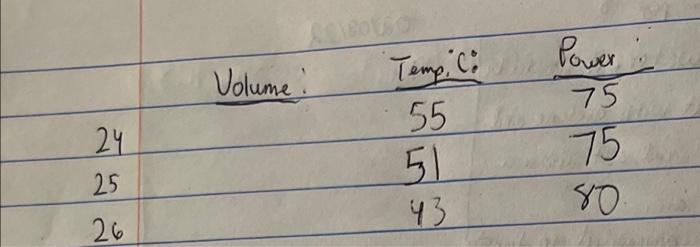 Volume: Temp.°C: Power:
24 55 75
25 51 75
26 43 80